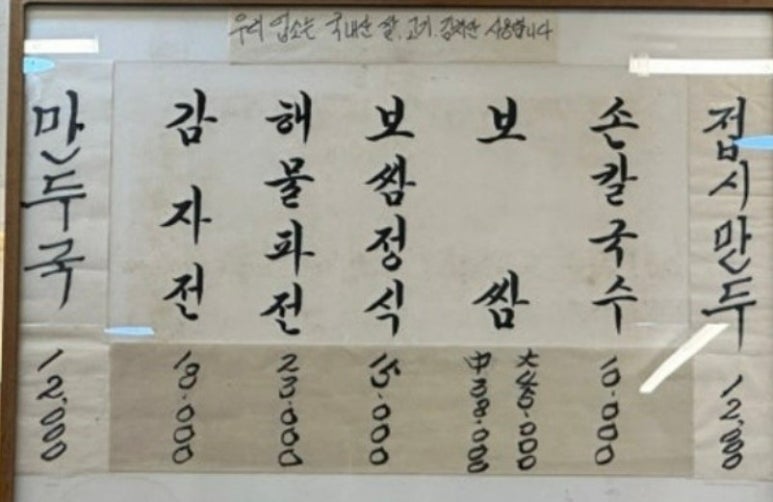 우리 업소는 국내산 쌀, 고기, 김치만 사용합니다
접시만두 12.000
손칼국수 10.000
보쌈 大 45.000
中 38.000
보쌈정식 15.000
해물파전 23.000
감자전 18.000
만두국 12.000